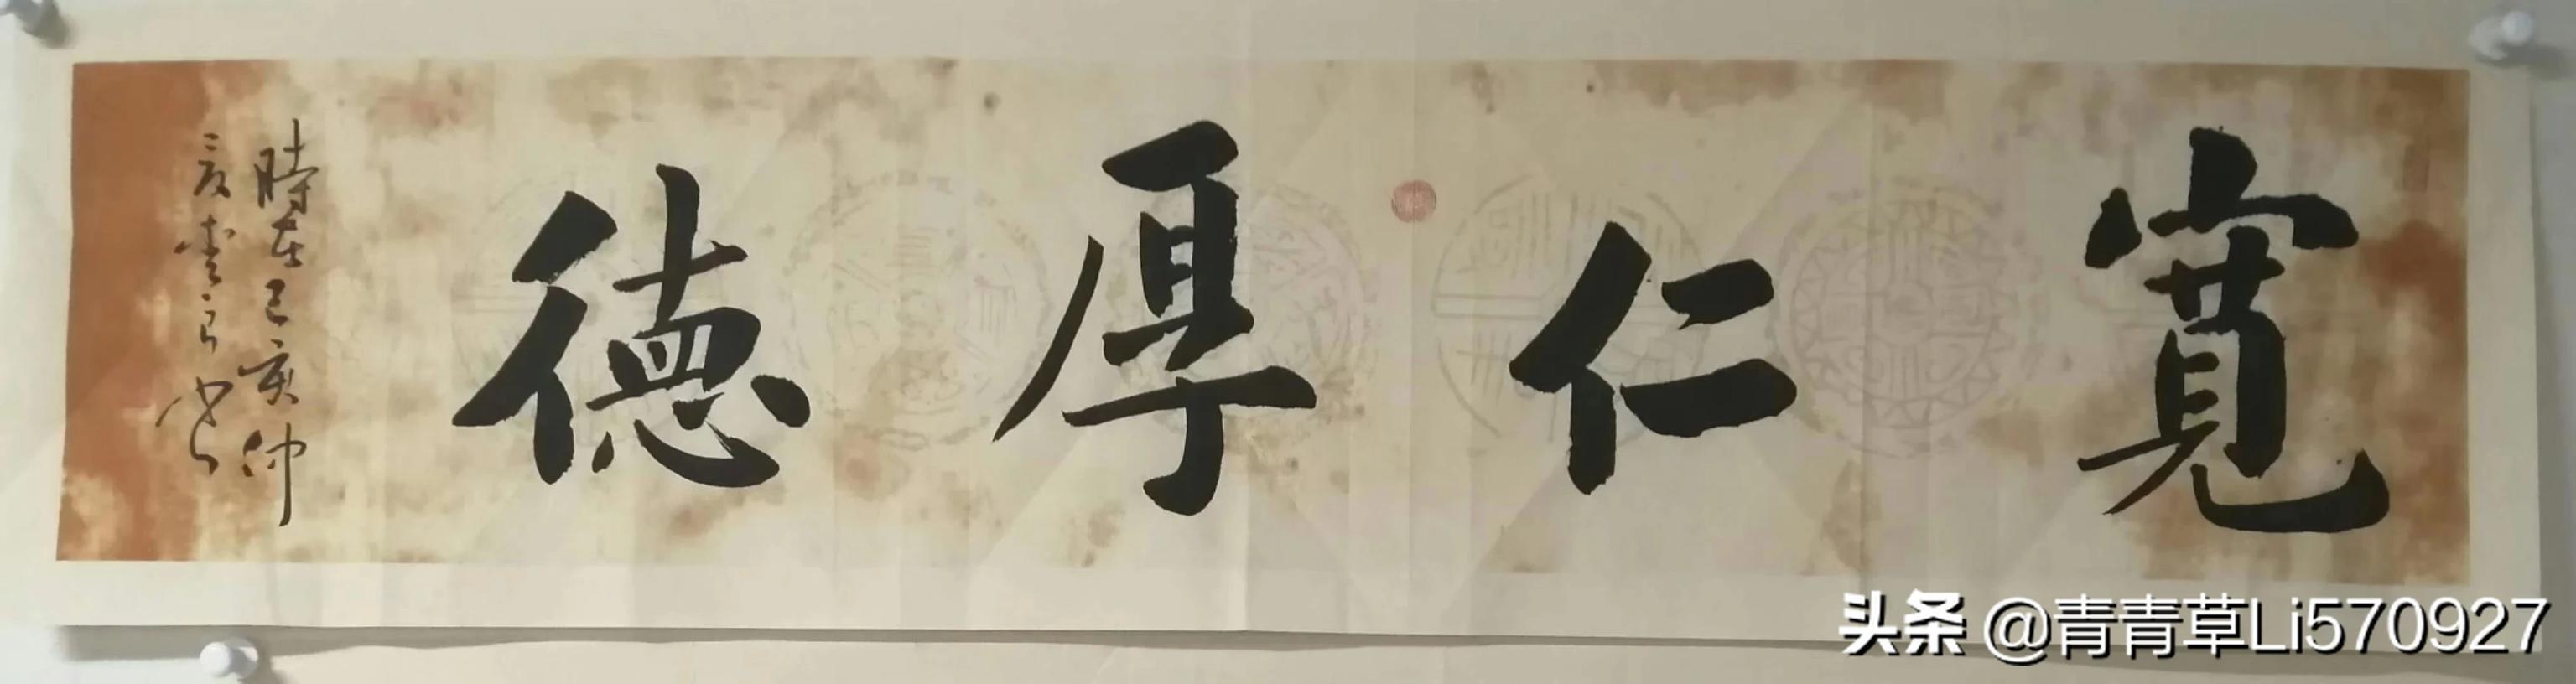 寬仁厚德
時在己亥仲
夏書
头条 @青青草Li570927